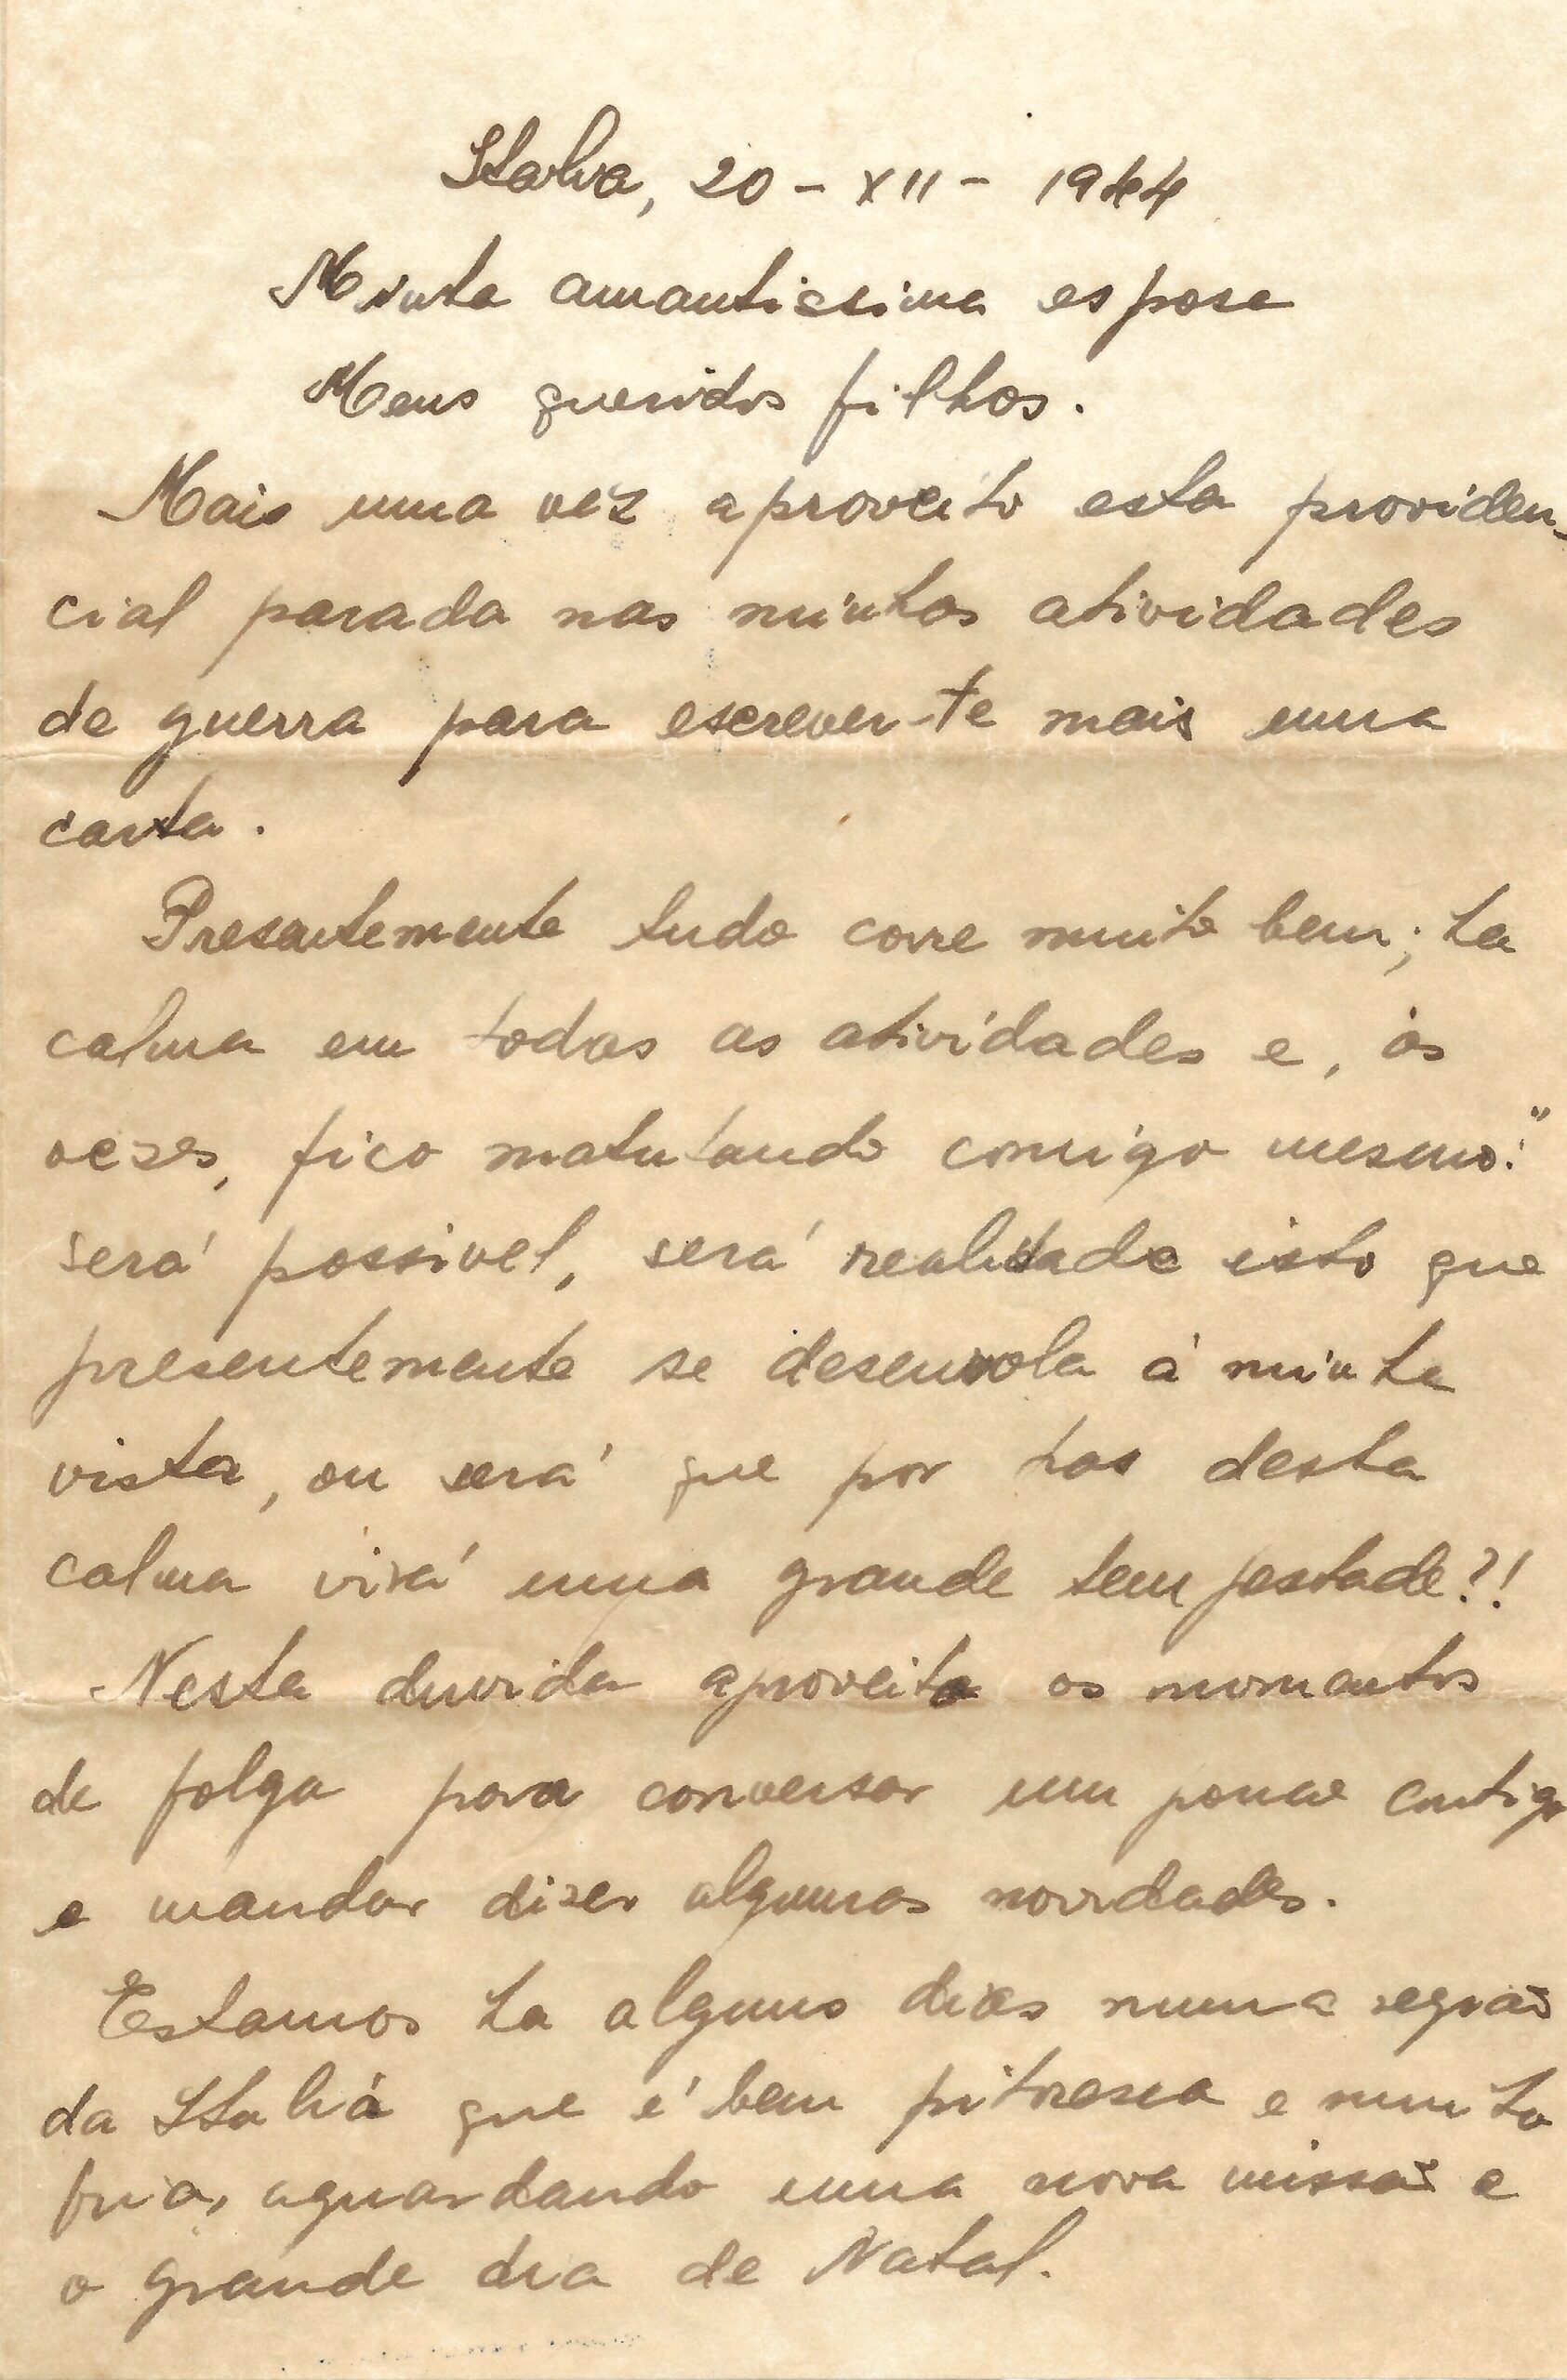 Italia, 20 - XII - 1944
Minha amantissima esposa
Meus queridos filhos.
Mais uma vez aproveito esta providen-
cial parada nas minhas atividades
de guerra para escrever-te mais uma
carta.
Presentemente tudo corre muito bem; ha
calma em todas as atividades e, ás
vezes, fico matutando comigo mesmo: "
será possivel, será realidade isto que
presentemente se desenrola á minha
vista, ou será que por tras desta
calma virá uma grande tempestade?!
Nesta duvida aproveito os momentos
de folga para conversar um pouco contigo
e mandar dizer algumas novidades.
Estamos ha alguns dias numa região
da Italia que é bem pitoresca e muito
fria, aguardando uma nova missão e
o grande dia de Natal.